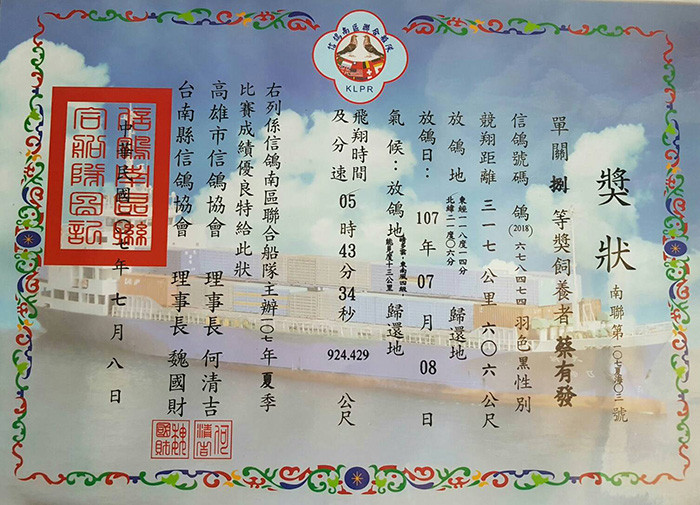 信鴿南區聯合船隊
KLPR
獎狀
南聯第一〇七夏海〇三號
單關 捌 等獎飼養者 蔡有發
信鴿號碼 鴿(2018)六七八四七四 羽色黑性別
競翔距離 三一七公里六〇六公尺
放鴿地 東經一一八度一四分 北緯二一度〇六分 歸還地
放鴿日：107年07月08日
氣候：放鴿地 晴多雲、東南風四級 能見度十三公里 歸還地
飛翔時間及分速 05時43分34秒 924.429 公尺
右列係信鴿南區聯合船隊主辦一〇七年夏季
比賽成績優良特給此狀
高雄市信鴿協會 理事長 何清吉
台南縣信鴿協會 理事長 魏國財
中華民國一〇七年七月八日
信鴿南區聯合船隊圖記
何清吉
魏國財